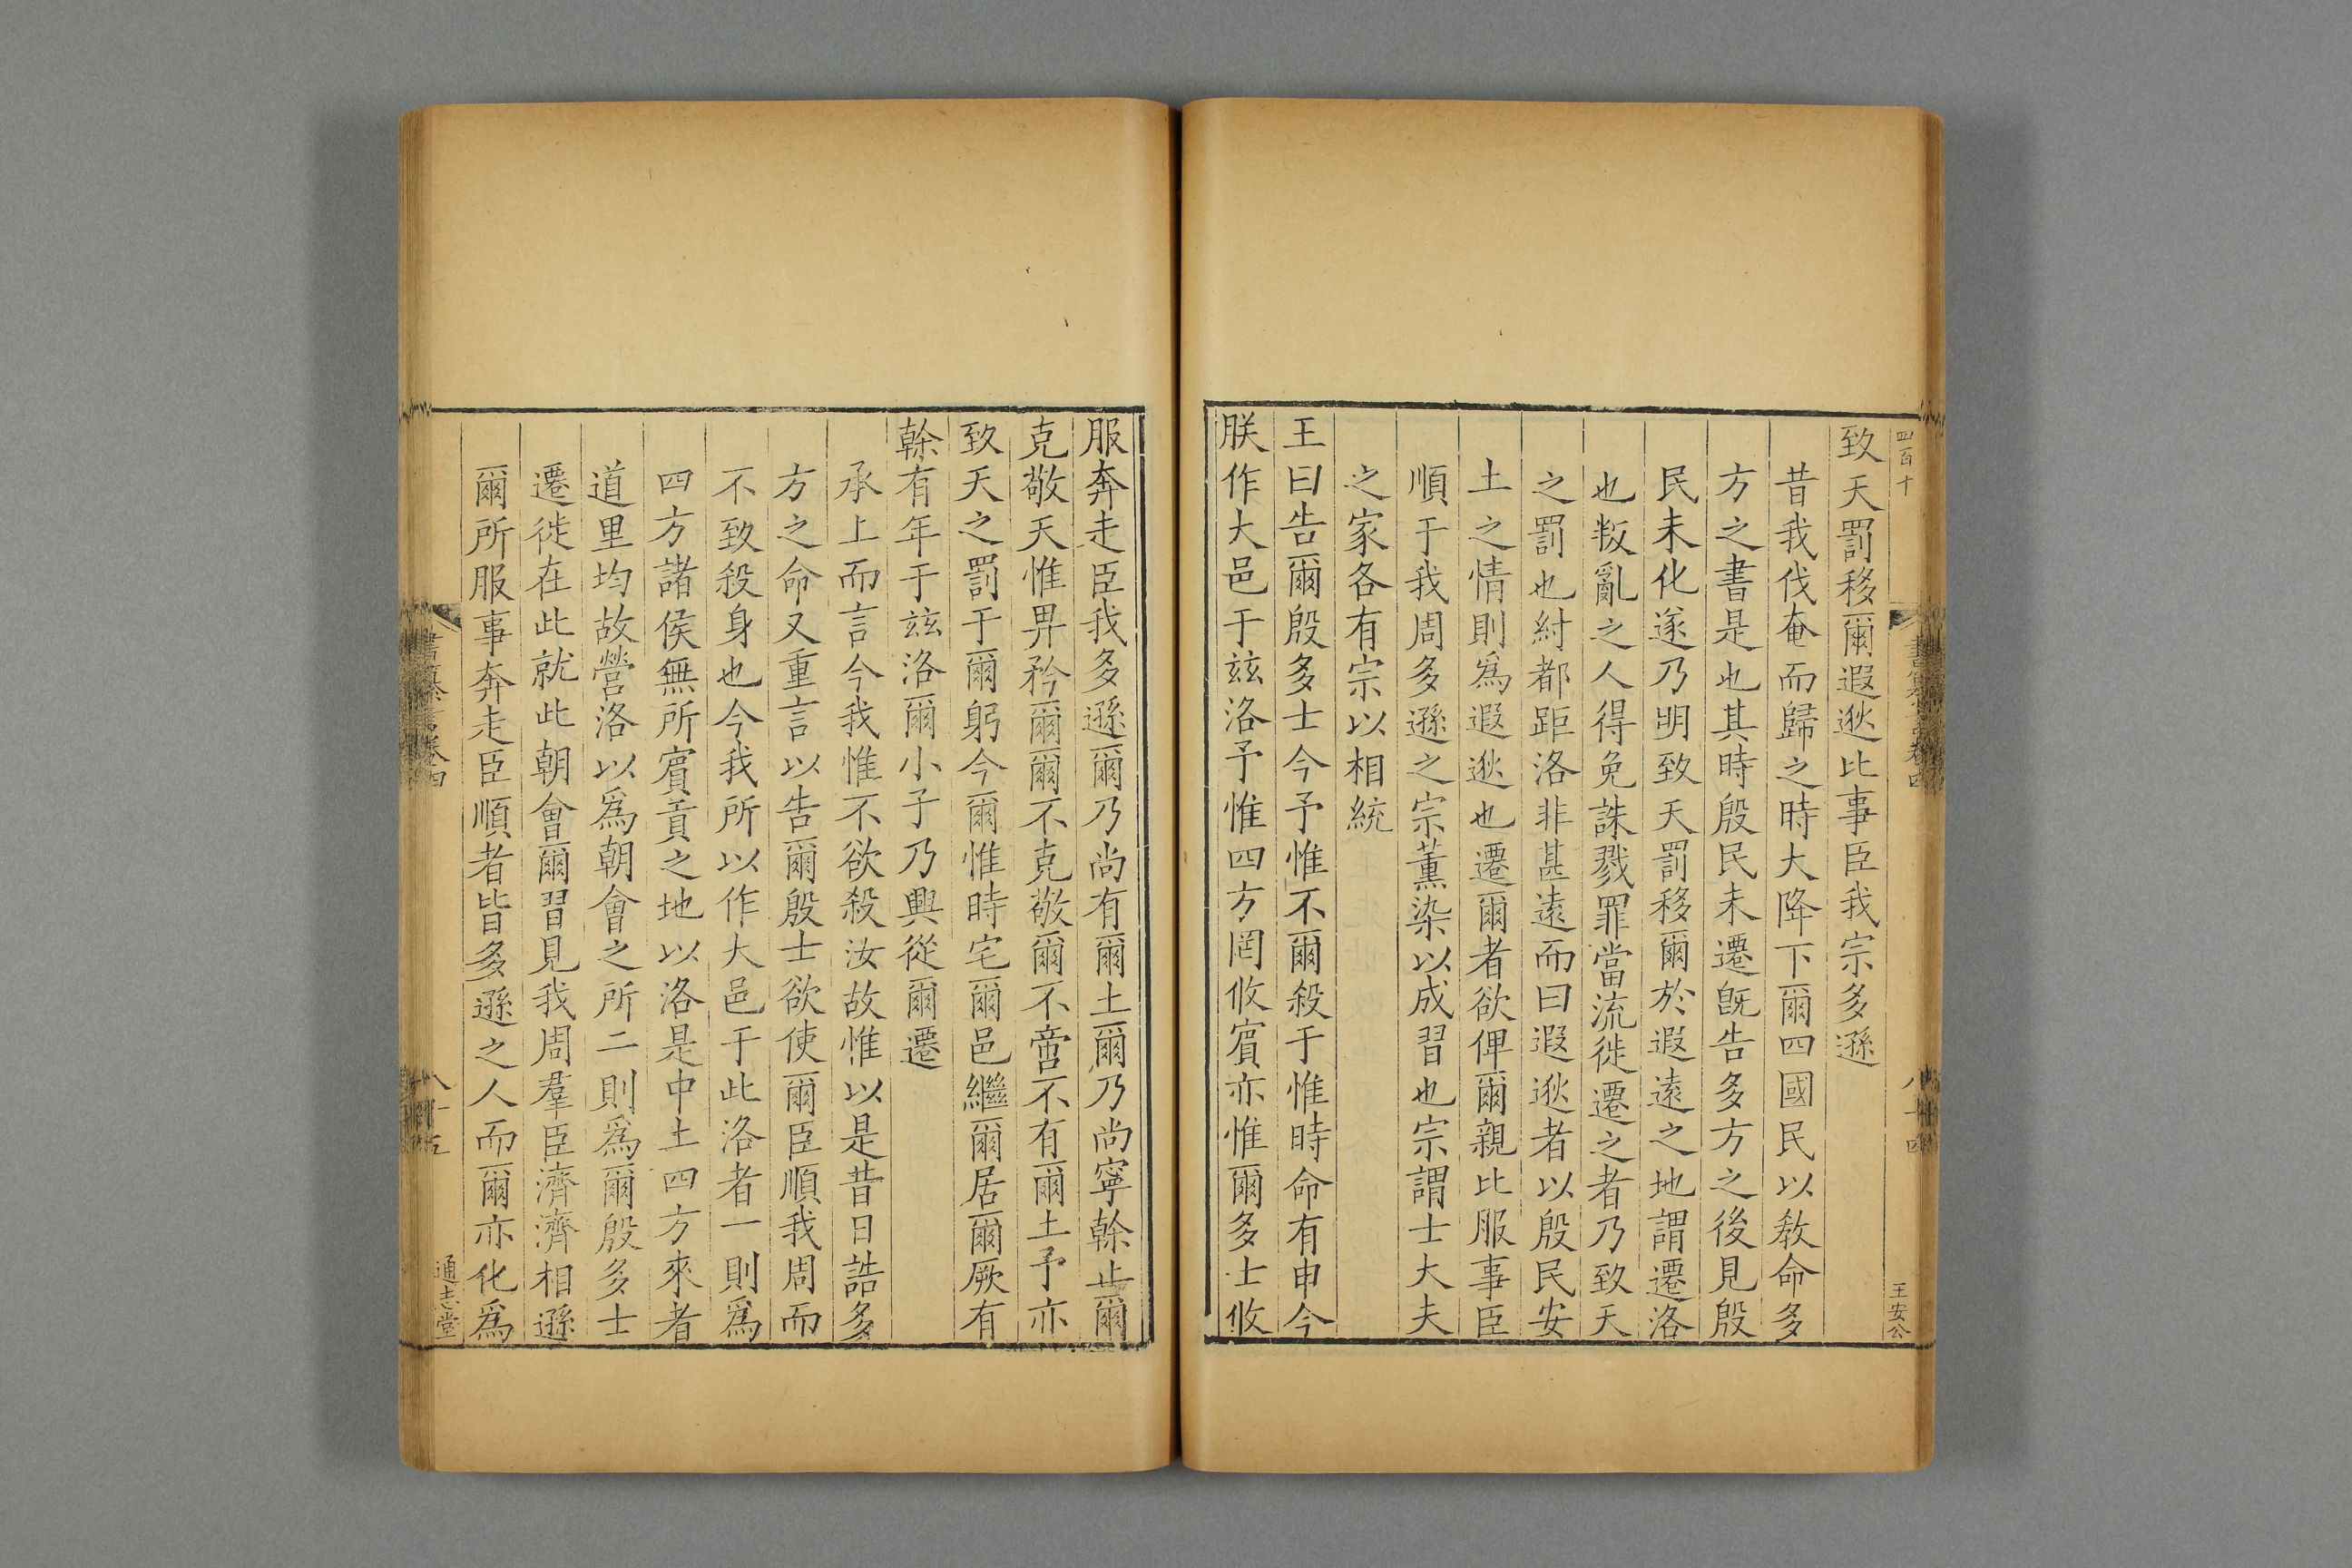 四百十
王安公
致天罰移爾遐逖比事臣我宗多遜
昔我伐奄而歸之時大降下爾四國民以敎命多
方之書是也其時殷民未遷旣告多方之後見殷
民未化遂乃明致天罰移爾於遐遠之地謂遷洛
也叛亂之人得免誅戮罪當流徙遷之者乃致天
之罰也紂都距洛非甚遠而曰遐逖者以殷民安
土之情則爲遐逖也遷爾者欲俾爾親比服事臣
順于我周多遜之宗薰染以成習也宗謂士大夫
之家各有宗以相統
王曰告爾殷多士今予惟不爾殺予惟時命有申今
朕作大邑于兹洛予惟四方罔攸賓亦惟爾多士攸
服奔走臣我多遜爾乃尚有爾土爾乃尚寧幹止爾
克敬天惟畀矜爾爾不克敬爾不啻不有爾土予亦
致天之罰于爾躬今爾惟時宅爾邑繼爾居爾厥有
幹有年于兹洛爾小子乃興從爾遷
承上而言今我惟不欲殺汝故惟以是昔日誥多
方之命又重言以告爾殷士欲使爾臣順我周而
不致殺身也今我所以作大邑于此洛者一則爲
四方諸侯無所賓貢之地以洛是中土四方來者
道里均故營洛以爲朝會之所二則爲爾殷多士
遷徙在此就此朝會爾習見我周羣臣濟濟相遜
爾所服事奔走臣順者皆多遜之人而爾亦化爲
書纂言卷四
八十五
通志堂